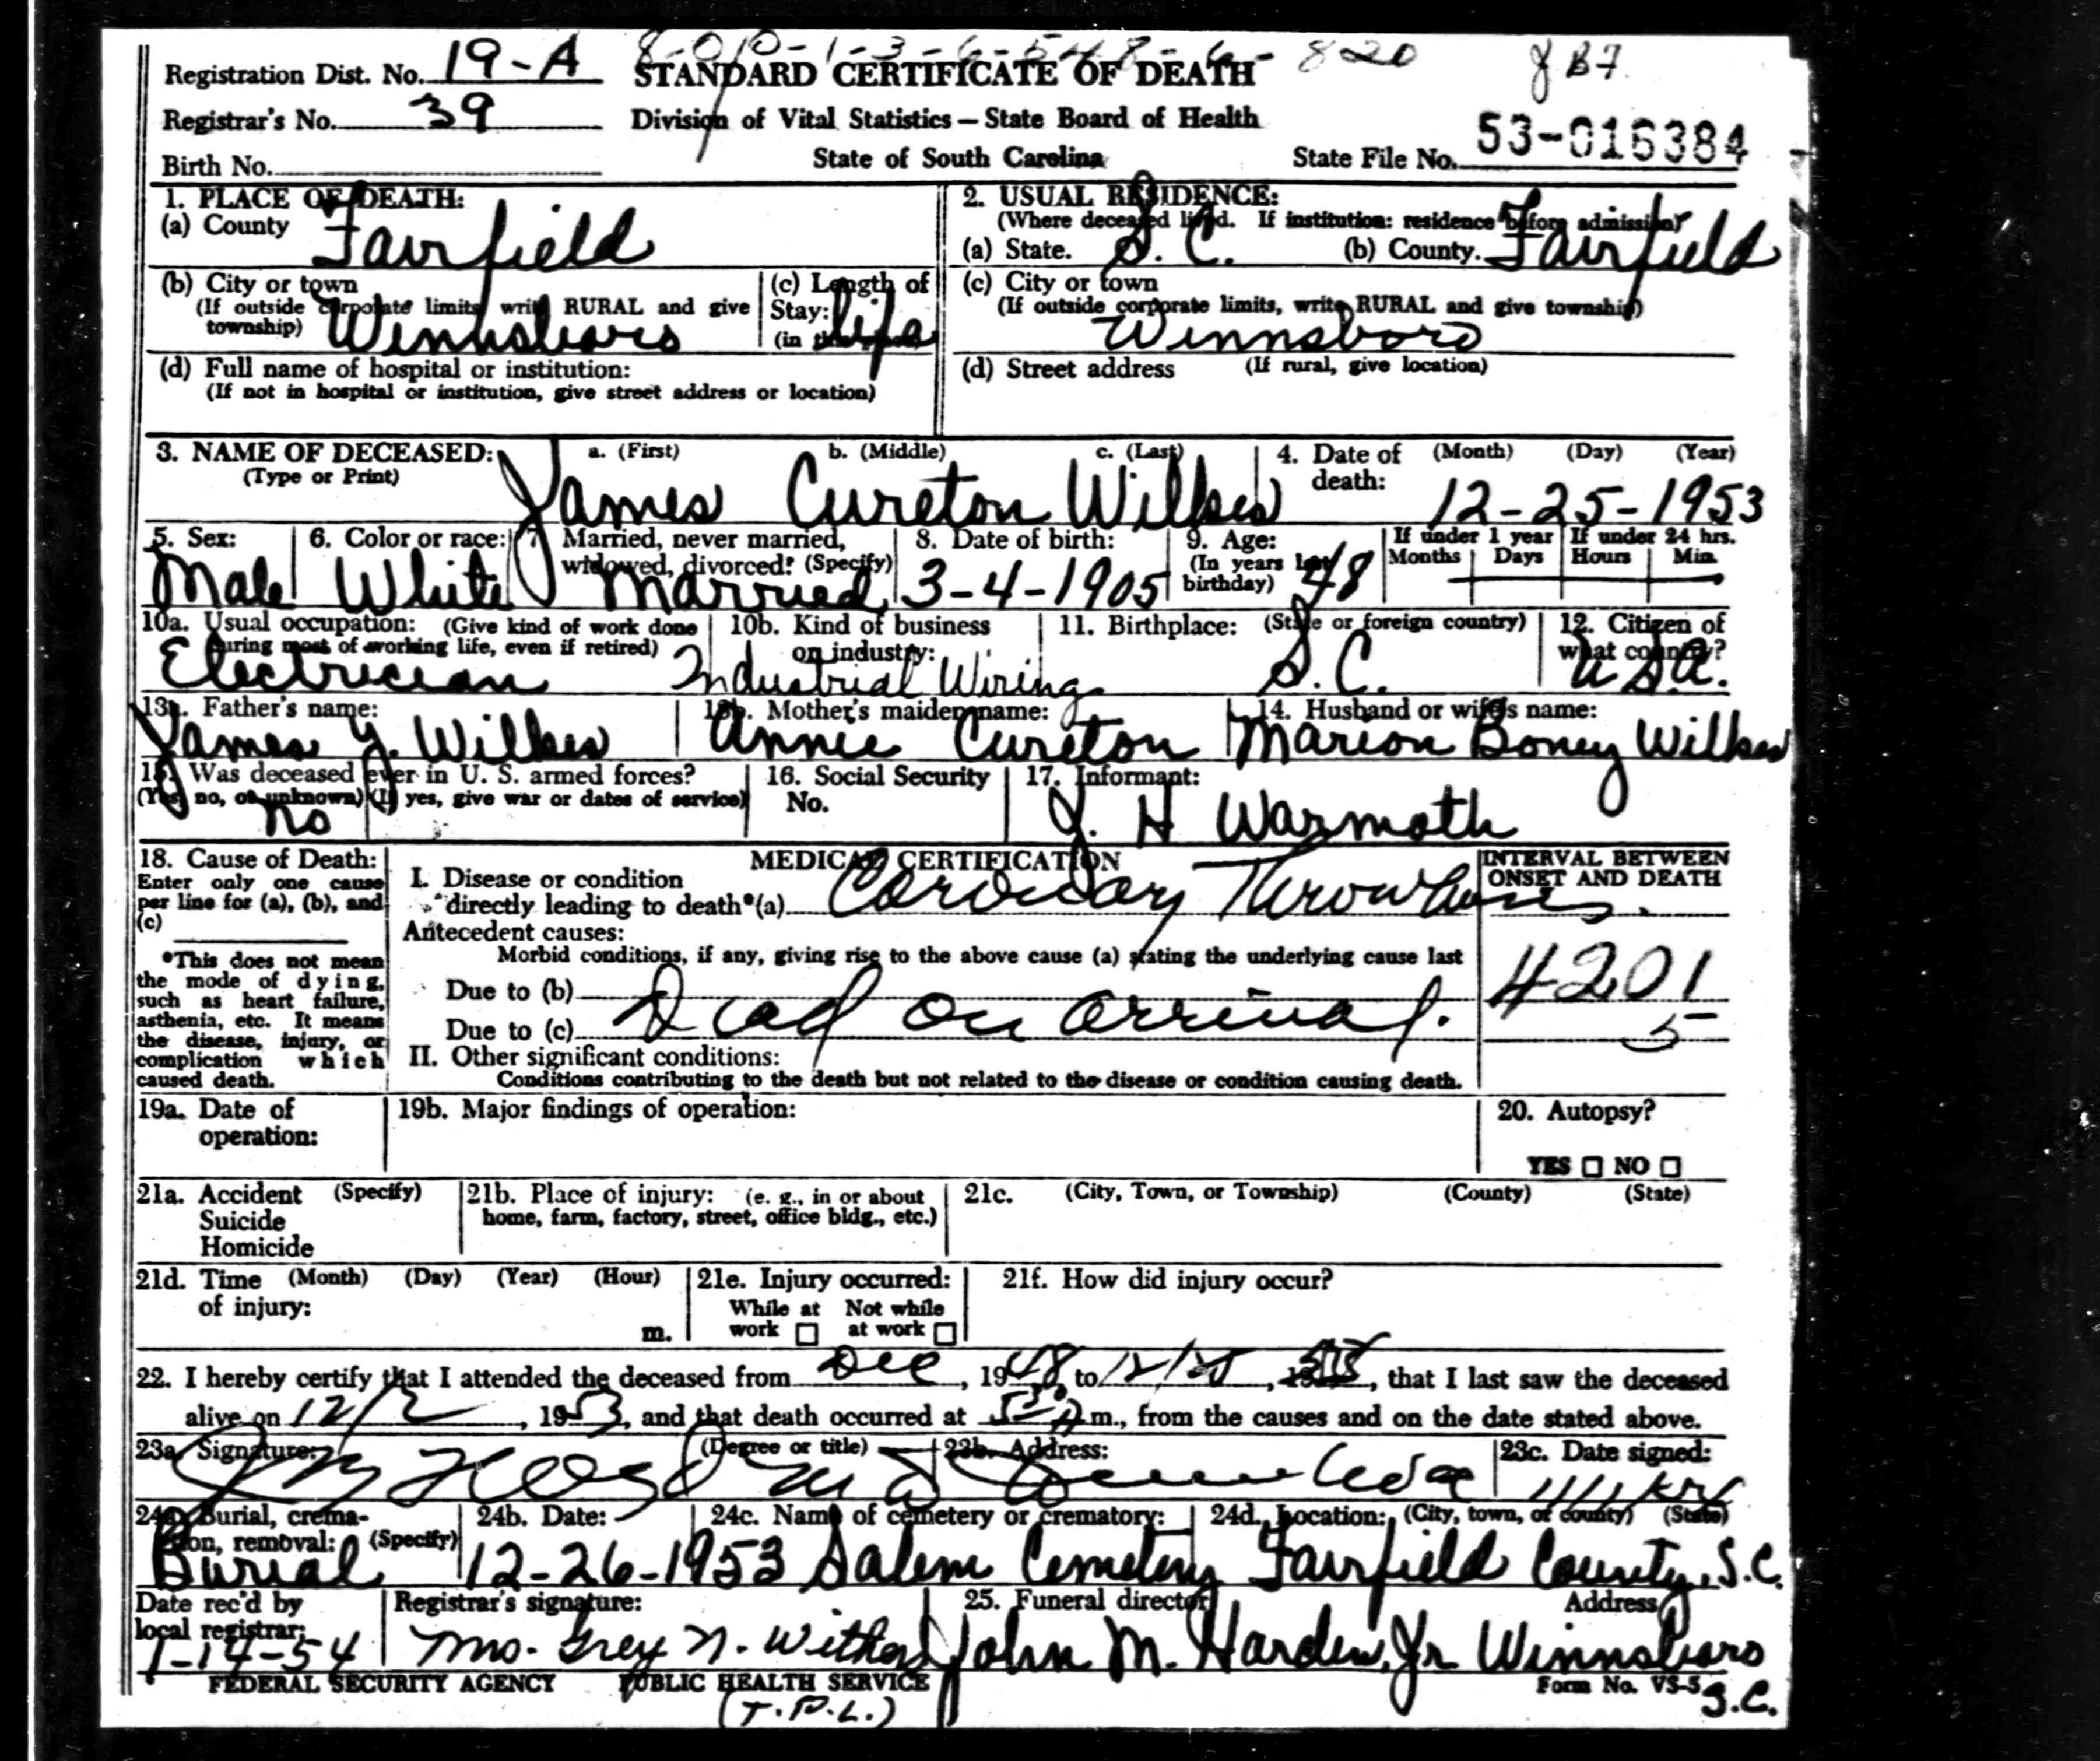 Registration Dist. No. 19-A 8-0 10-1-3-6-548-6-820
STANDARD CERTIFICATE OF DEATH
Registrar's No. 39
Division of Vital Statistics — State Board of Health
53-016384
Birth No.
State of South Carolina
State File No.
1. PLACE OF DEATH:
(a) County Fairfield
2. USUAL RESIDENCE:
(Where deceased lived. If institution: residence before admission)
(a) State. S.C. (b) County. Fairfield
(b) City or town
(If outside corporate limits, write RURAL and give township) Winnsboro
(c) Length of Stay: life
(in
(c) City or town
(If outside corporate limits, write RURAL and give township)
Winnsboro
(d) Full name of hospital or institution:
(If not in hospital or institution, give street address or location)
(d) Street address (If rural, give location)
3. NAME OF DECEASED: a. (First) b. (Middle) c. (Last)
(Type or Print) James Cureton Wilkes
4. Date of death: (Month) (Day) (Year)
12-25-1953
5. Sex: Male
6. Color or race: White
7. Married, never married, widowed, divorced? (Specify) Married
8. Date of birth: 3-4-1905
9. Age: (In years last birthday) 48
If under 1 year Months Days
If under 24 hrs. Hours Min.
10a. Usual occupation: (Give kind of work done during most of working life, even if retired)
Electrician
10b. Kind of business or industry:
Industrial Wiring
11. Birthplace: (State or foreign country)
S.C.
12. Citizen of what country?
USA.
13a. Father's name:
James Y. Wilkes
13b. Mother's maiden name:
Annie Cureton
14. Husband or wife's name:
Marion Boney Wilkes
15. Was deceased ever in U. S. armed forces?
(Yes, no, or unknown) (If yes, give war or dates of service)
no
16. Social Security No.
17. Informant:
J. H Warmoth
18. Cause of Death:
Enter only one cause per line for (a), (b), and (c)
*This does not mean the mode of dying, such as heart failure, asthenia, etc. It means the disease, injury, or complication which caused death.
MEDICAL CERTIFICATION
I. Disease or condition
directly leading to death*(a) Coronary Thrombosis.
INTERVAL BETWEEN ONSET AND DEATH
Antecedent causes:
Morbid conditions, if any, giving rise to the above cause (a) stating the underlying cause last
4201
Due to (b)
Due to (c) Dead on arrival.
5
II. Other significant conditions:
Conditions contributing to the death but not related to the disease or condition causing death.
19a. Date of operation:
19b. Major findings of operation:
20. Autopsy?
YES NO
21a. Accident (Specify)
Suicide
Homicide
21b. Place of injury: (e. g., in or about home, farm, factory, street, office bldg., etc.)
21c. (City, Town, or Township) (County) (State)
21d. Time (Month) (Day) (Year) (Hour)
of injury: m.
21e. Injury occurred:
While at work Not while at work
21f. How did injury occur?
22. I hereby certify that I attended the deceased from Dec, 1948 to, that I last saw the deceased
alive on 12/2, 1953, and that death occurred at 530 A m., from the causes and on the date stated above.
23a. Signature: (Degree or title) MD
23b. Address:
23c. Date signed:
24a. Burial, cremation, removal: (Specify)
Burial
24b. Date:
12-26-1953
24c. Name of cemetery or crematory:
Salem Cemetery
24d. Location: (City, town, or county) (State)
Fairfield County, S.C.
Date rec'd by local registrar:
1-14-54
Registrar's signature:
Mrs. Grey N. Withers
25. Funeral director Address
John M. Harden, Jr Winnsboro
S.C.
FEDERAL SECURITY AGENCY PUBLIC HEALTH SERVICE Form No. VS-5
(T.P.L.)